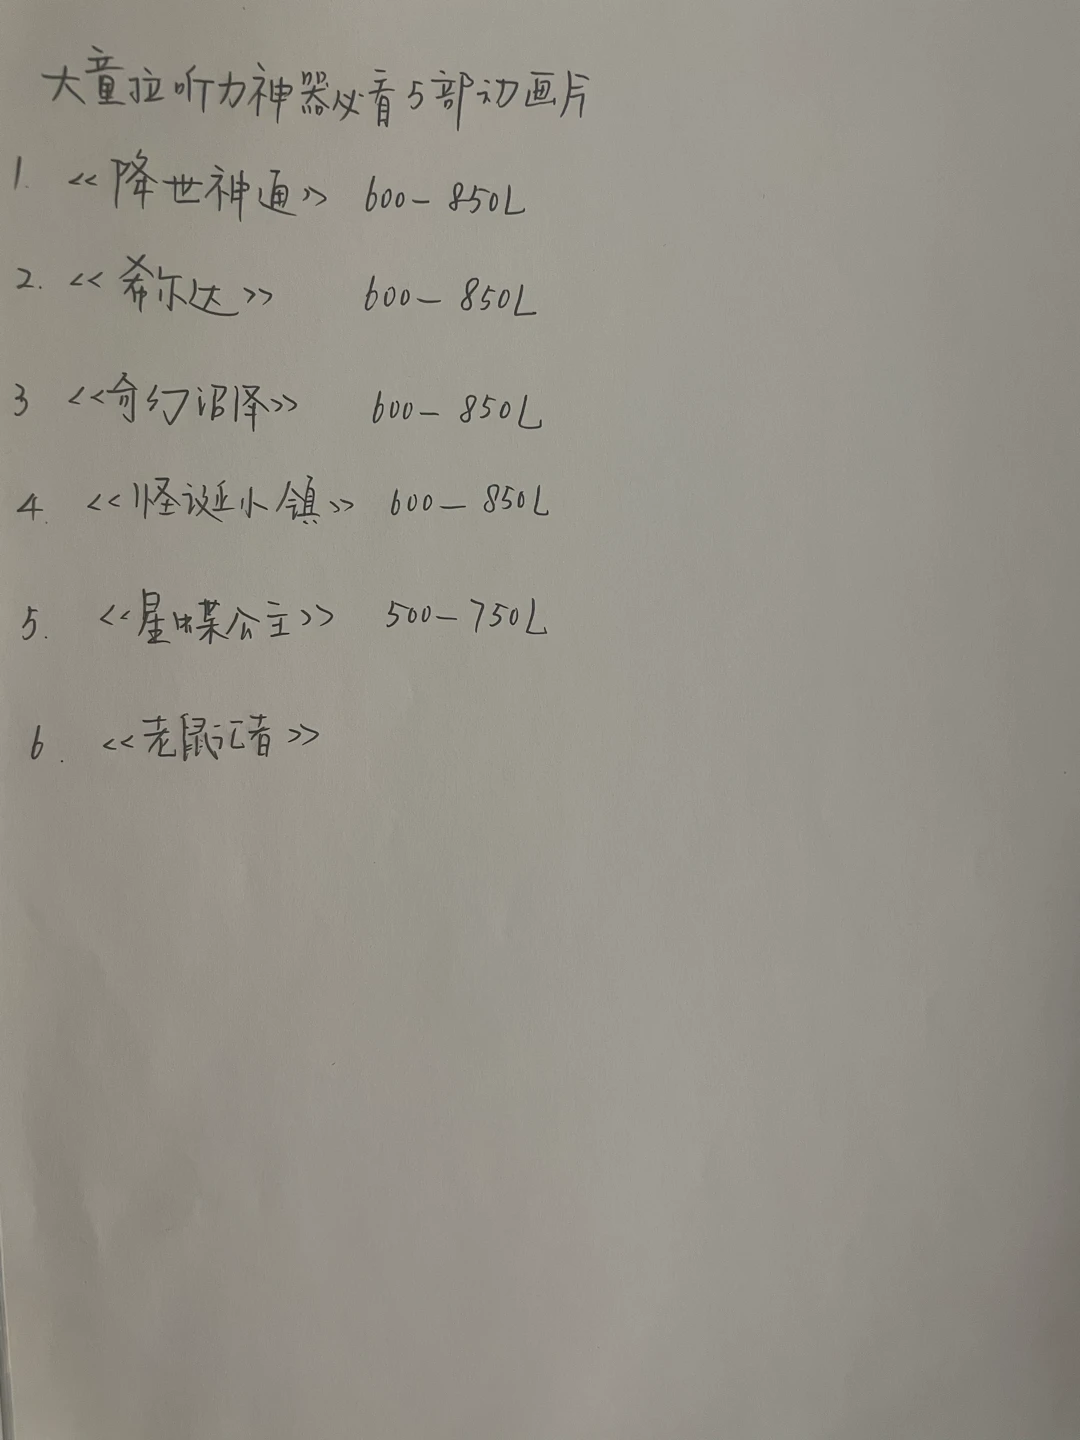 大童拉听力神器必看5部动画片
1. <<降世神通>> 600-850L
2. <<希尔达>> 600-850L
3 <<奇幻沼泽>> 600-850L
4. <<怪诞小镇>> 600-850L
5. <<星蝶公主>> 500-750L
6. <<老鼠记者>>